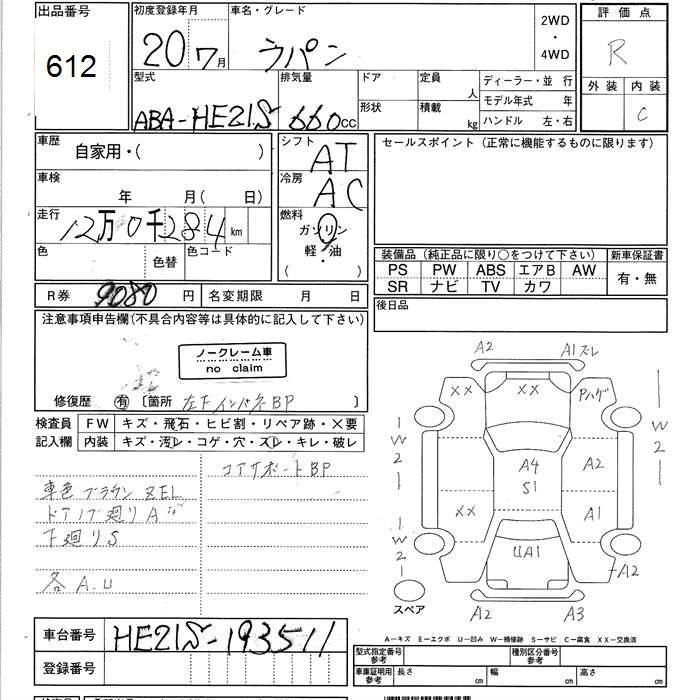 出品番号
612
初度登録年月
20 7月
車名・グレード
ラパン
2WD
・
4WD
評価点
R
外装 内装
C
型式
ABA-HE21S
排気量
660cc
ドア
形状
定員
人
積載
kg
ディーラー・並行
モデル年式 年
ハンドル 左・右
車歴
自家用・( )
車検
年 月( 日)
走行
12万0千284km
色
色替
色コード
シフト
AT
冷房
AC
燃料
ガソリン
軽・油
( )
セールスポイント(正常に機能するものに限ります)
装備品(純正品に限り○をつけて下さい)
新車保証書
PS PW ABS エアB AW
SR ナビ TV カワ
有・無
R券 9080円
名変期限 月 日
後日品
注意事項申告欄(不具合内容等は具体的に記入して下さい)
ノークレーム車
no claim
修復歴 有 〔箇所 左FインパネBP 〕
検査員
記入欄
FW キズ・飛石・ヒビ割・リペア跡・×要
内装 キズ・汚レ・コゲ・穴・スレ・キレ・破レ
コアサポートBP
車色ブラウン ZEL
ドアノブ廻りA
下廻りS
各A.U
A2
A1ズレ
XX
XX
Pハゲ
1
W
2
1
W
2
1
W
2
A4
S1
A2
XX
A1
UA1
A2
スペア
A2
A3
A-キズ E-エクボ U-凹み W-補修跡 S-サビ C-腐食 XX-交換済
車台番号
HE21S-193511
登録番号
型式指定番号
参考
種別区分番号
参考
車庫証明用
参考
長さ
cm
幅
cm
高さ
cm